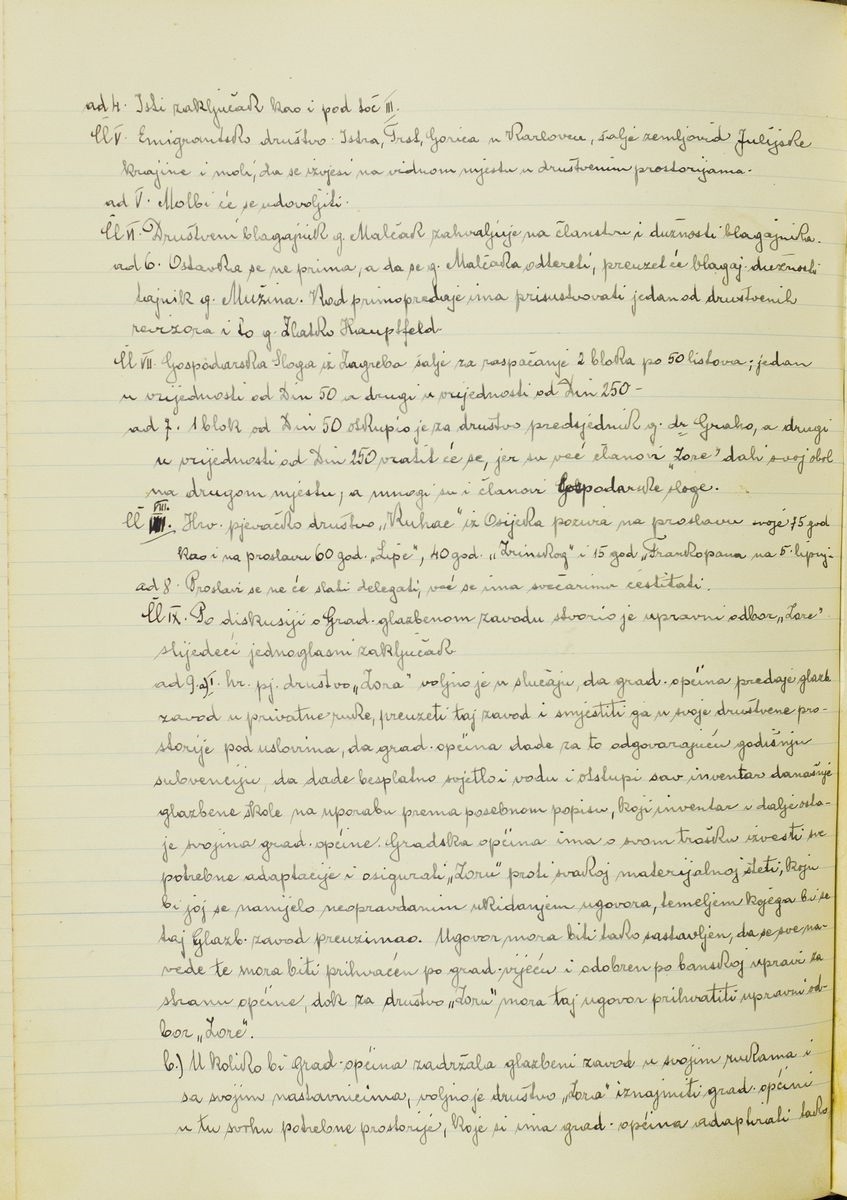 ad 4. Isti zaključak kao i pod toč III.
Čl V. Emigrantsko društvo Istra, Trst, Gorica u Karlovcu, šalje zemljovid Julijske
krajine i moli, da se izvjesi na vidnom mjestu u društvenim prostorijama.
ad V. Molbi će se udovoljiti.
Čl VI. Društveni blagajnik g. Malčak zahvaljuje na članstvu i dužnosti blagajnika.
ad 6. Ostavka se ne prima, a da se g. Malčaka odtereti, preuzet će blagaj. dužnosti
tajnik g. Mužina. Kod primopredaje ima prisustvovati jedan od društvenih
revizora i to g. Zlatko Hauptfeld.
Čl VII. Gospodarska Sloga iz Zagreba šalje za raspačanje 2 bloka po 50 listova; jedan
u vrijednosti od Din 50 a drugi u vrijednosti od Din 250-
ad 7. 1 blok od Din 50 otkupio je za društvo predsjednik g. dr Grako, a drugi
u vrijednosti od Din 250 vratit će se, jer su već članovi „Zore" dali svoj obol
na drugom mjestu, a mnogi su i članovi Gospodarske sloge.
Čl VIII. Hrv. pjevačko društvo „Kuhač" iz Osijeka poziva na proslavu svoje 75 god
kao i na proslavu 60 god. „Lipe", 40 god. „Zrinskog" i 15 god „Frankopana na 5. lipnja
ad 8. Proslavi se ne će slati delegati, već se ima svečarima čestitati.
Čl IX. Po diskusiji o Grad. glazbenom zavodu stvorio je upravni odbor „Zore"
slijedeći jednoglasni zaključak
ad 9. a) I. hr. pj. društvo „Zora" voljno je u slučaju, da grad. općina predaje glazb.
zavod u privatne ruke, preuzeti taj zavod i smjestiti ga u svoje društvene pro-
storije pod uslovima, da grad. općina dade za to odgovarajuću godišnju
subvenciju, da dade besplatno svjetlo i vodu i otstupi sav inventar današnje
glazbene škole na uporabu prema posebnom popisu, koji inventar i dalje osta-
je svojina grad. općine. Gradska općina ima o svom trošku izvesti sve
potrebne adaptacije i osigurati „Zoru" proti svakoj materijalnoj šteti, koju
bi joj se nanijelo neopravdanim ukidanjem ugovora, temeljem kojega bi se
taj Glazb. zavod preuzimao. Ugovor mora biti tako sastavljen, da se sve na-
vede te mora biti prihvaćen po grad. vijeću i odobren po banskoj upravi za
stranu općine, dok za društvo „Zoru" mora taj ugovor prihvatiti upravni od-
bor „Zore".
b.) U koliko bi Grad. općina zadržala glazbeni zavod u svojim rukama i
sa svojim nastavnicima, voljno je društvo „Zora" iznajmiti grad. općini
u tu svrhu potrebne prostorije, koje si ima grad. općina adaptirati tako